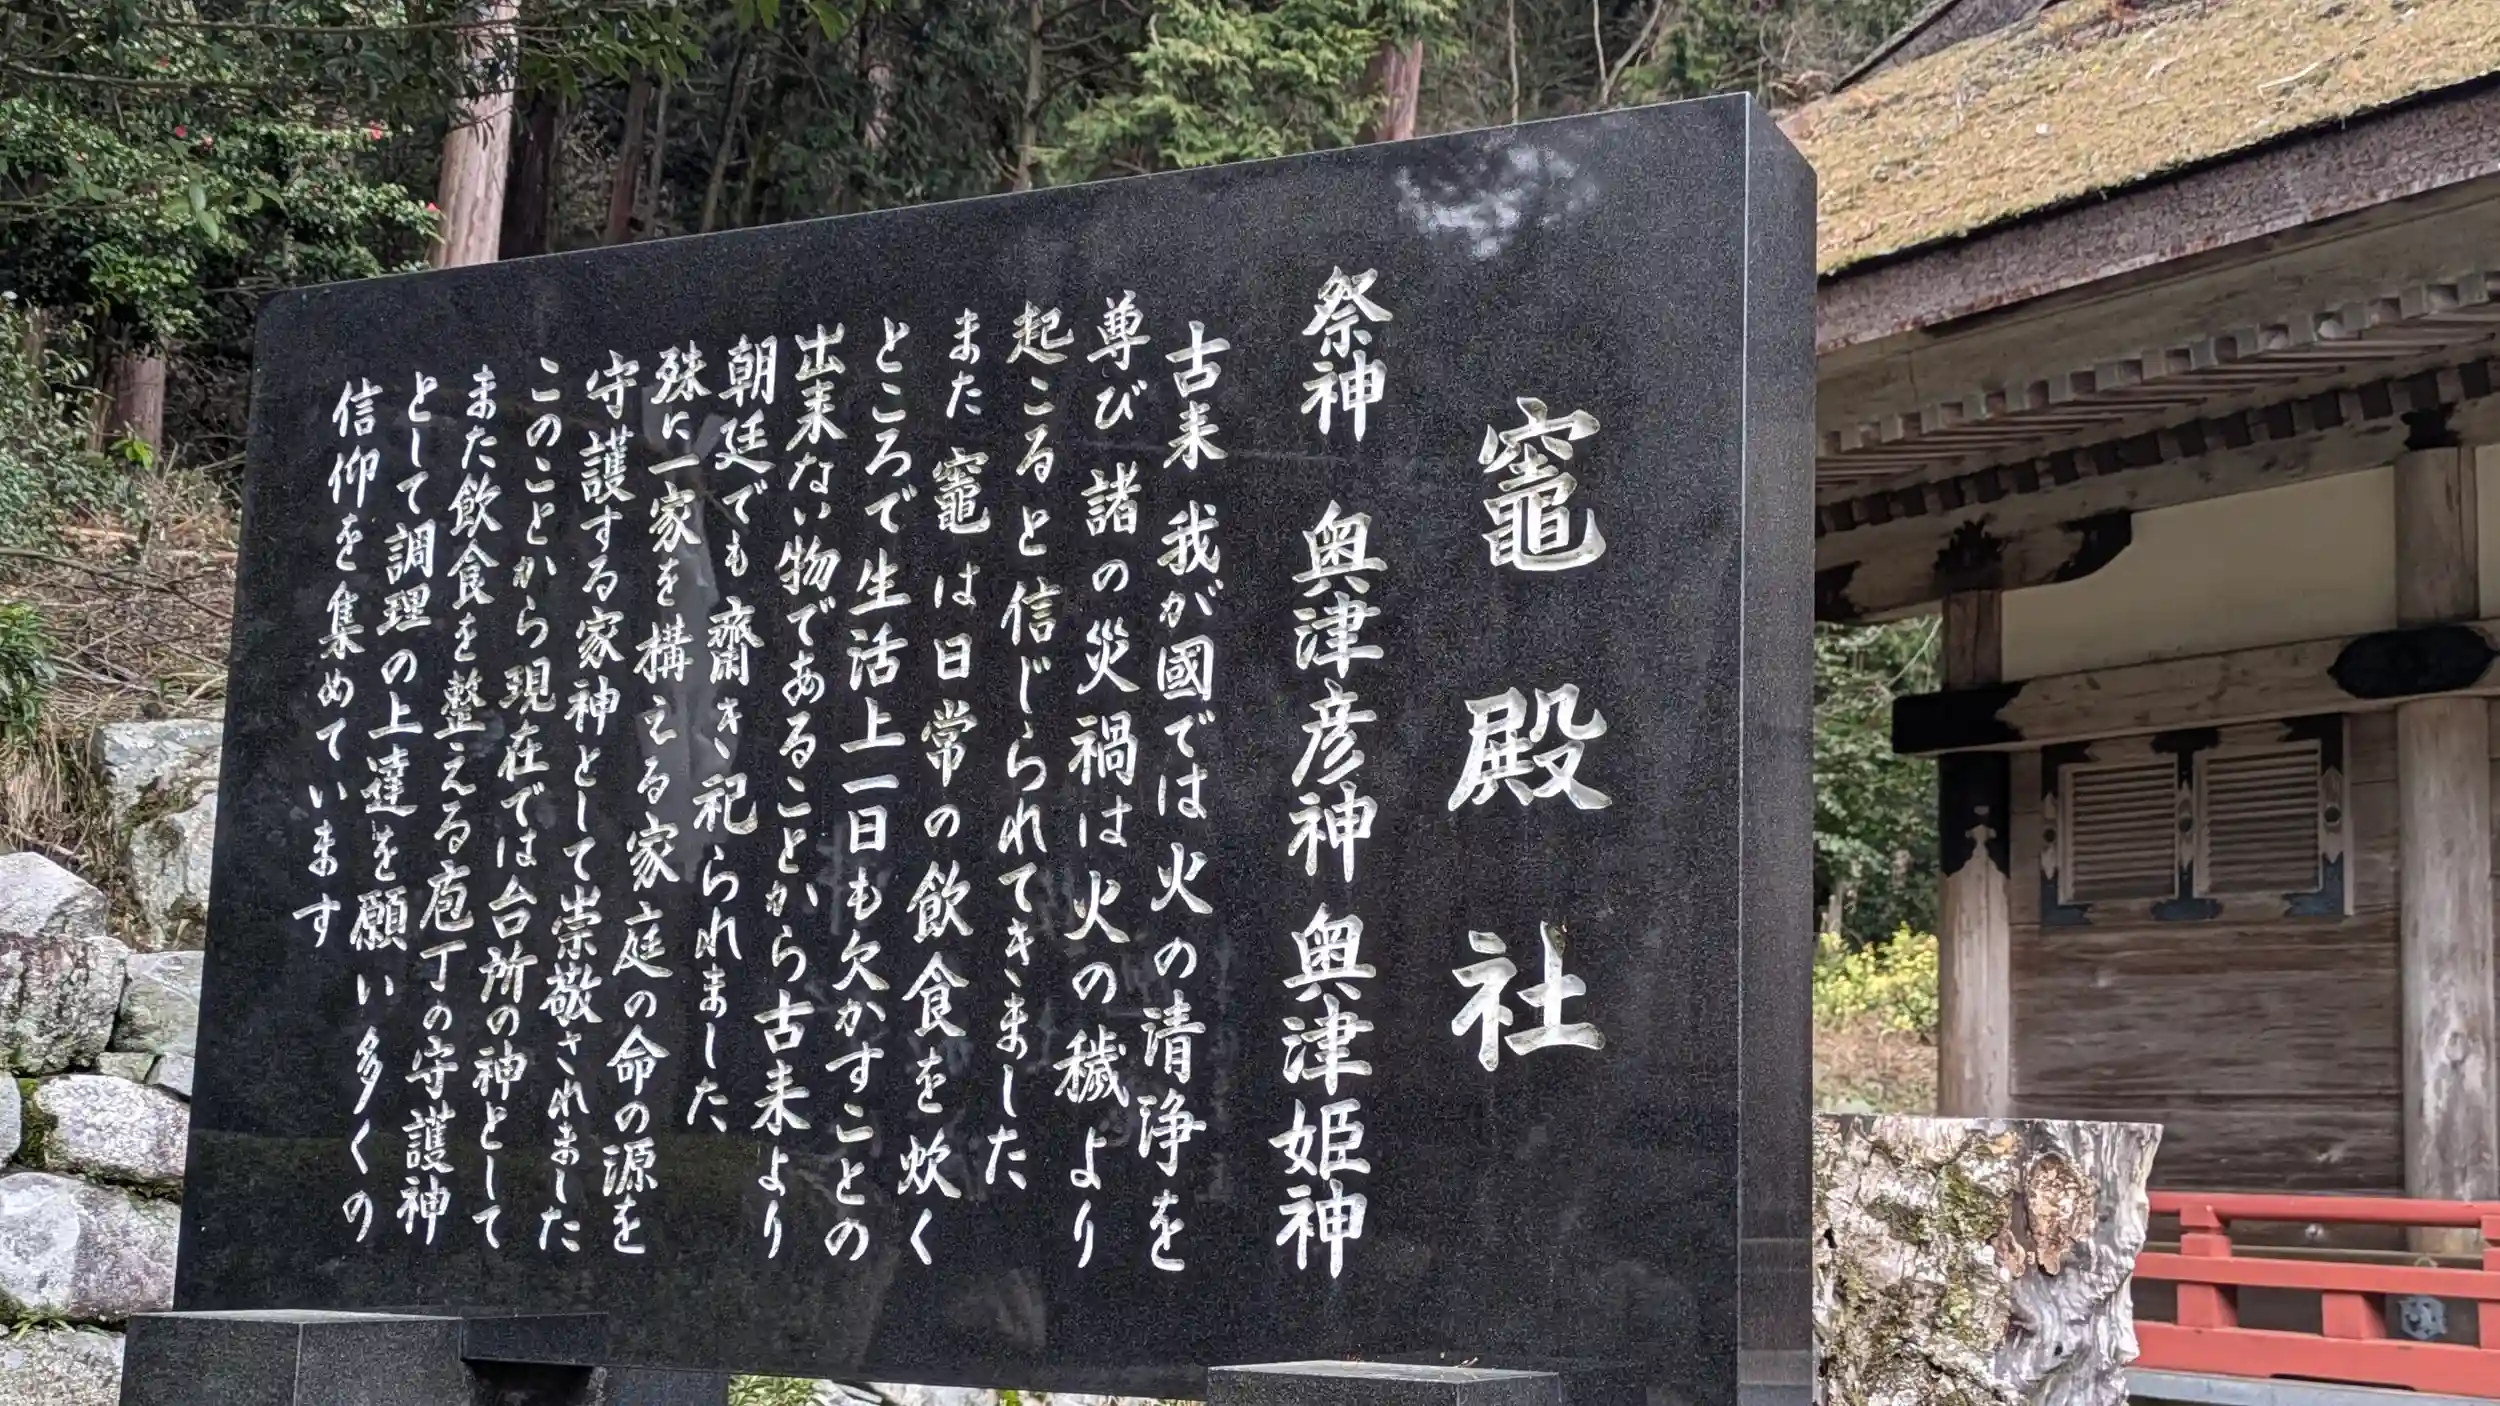 竈殿社
祭神 奥津彦神 奥津姫神
古来 我が國では火の清浄を
尊び 諸の災禍は火の穢より
起こると信じられてきました
また 竈は日常の飲食を炊く
ところで生活上一日も欠かすことの
出来ない物であることから古来より
朝廷でも齋き祀られました
殊に一家を構える家庭の命の源を
守護する家神として崇敬されました
このことから現在では台所の神として
また飲食を整える庖丁の守護神
として調理の上達を願い多くの
信仰を集めています